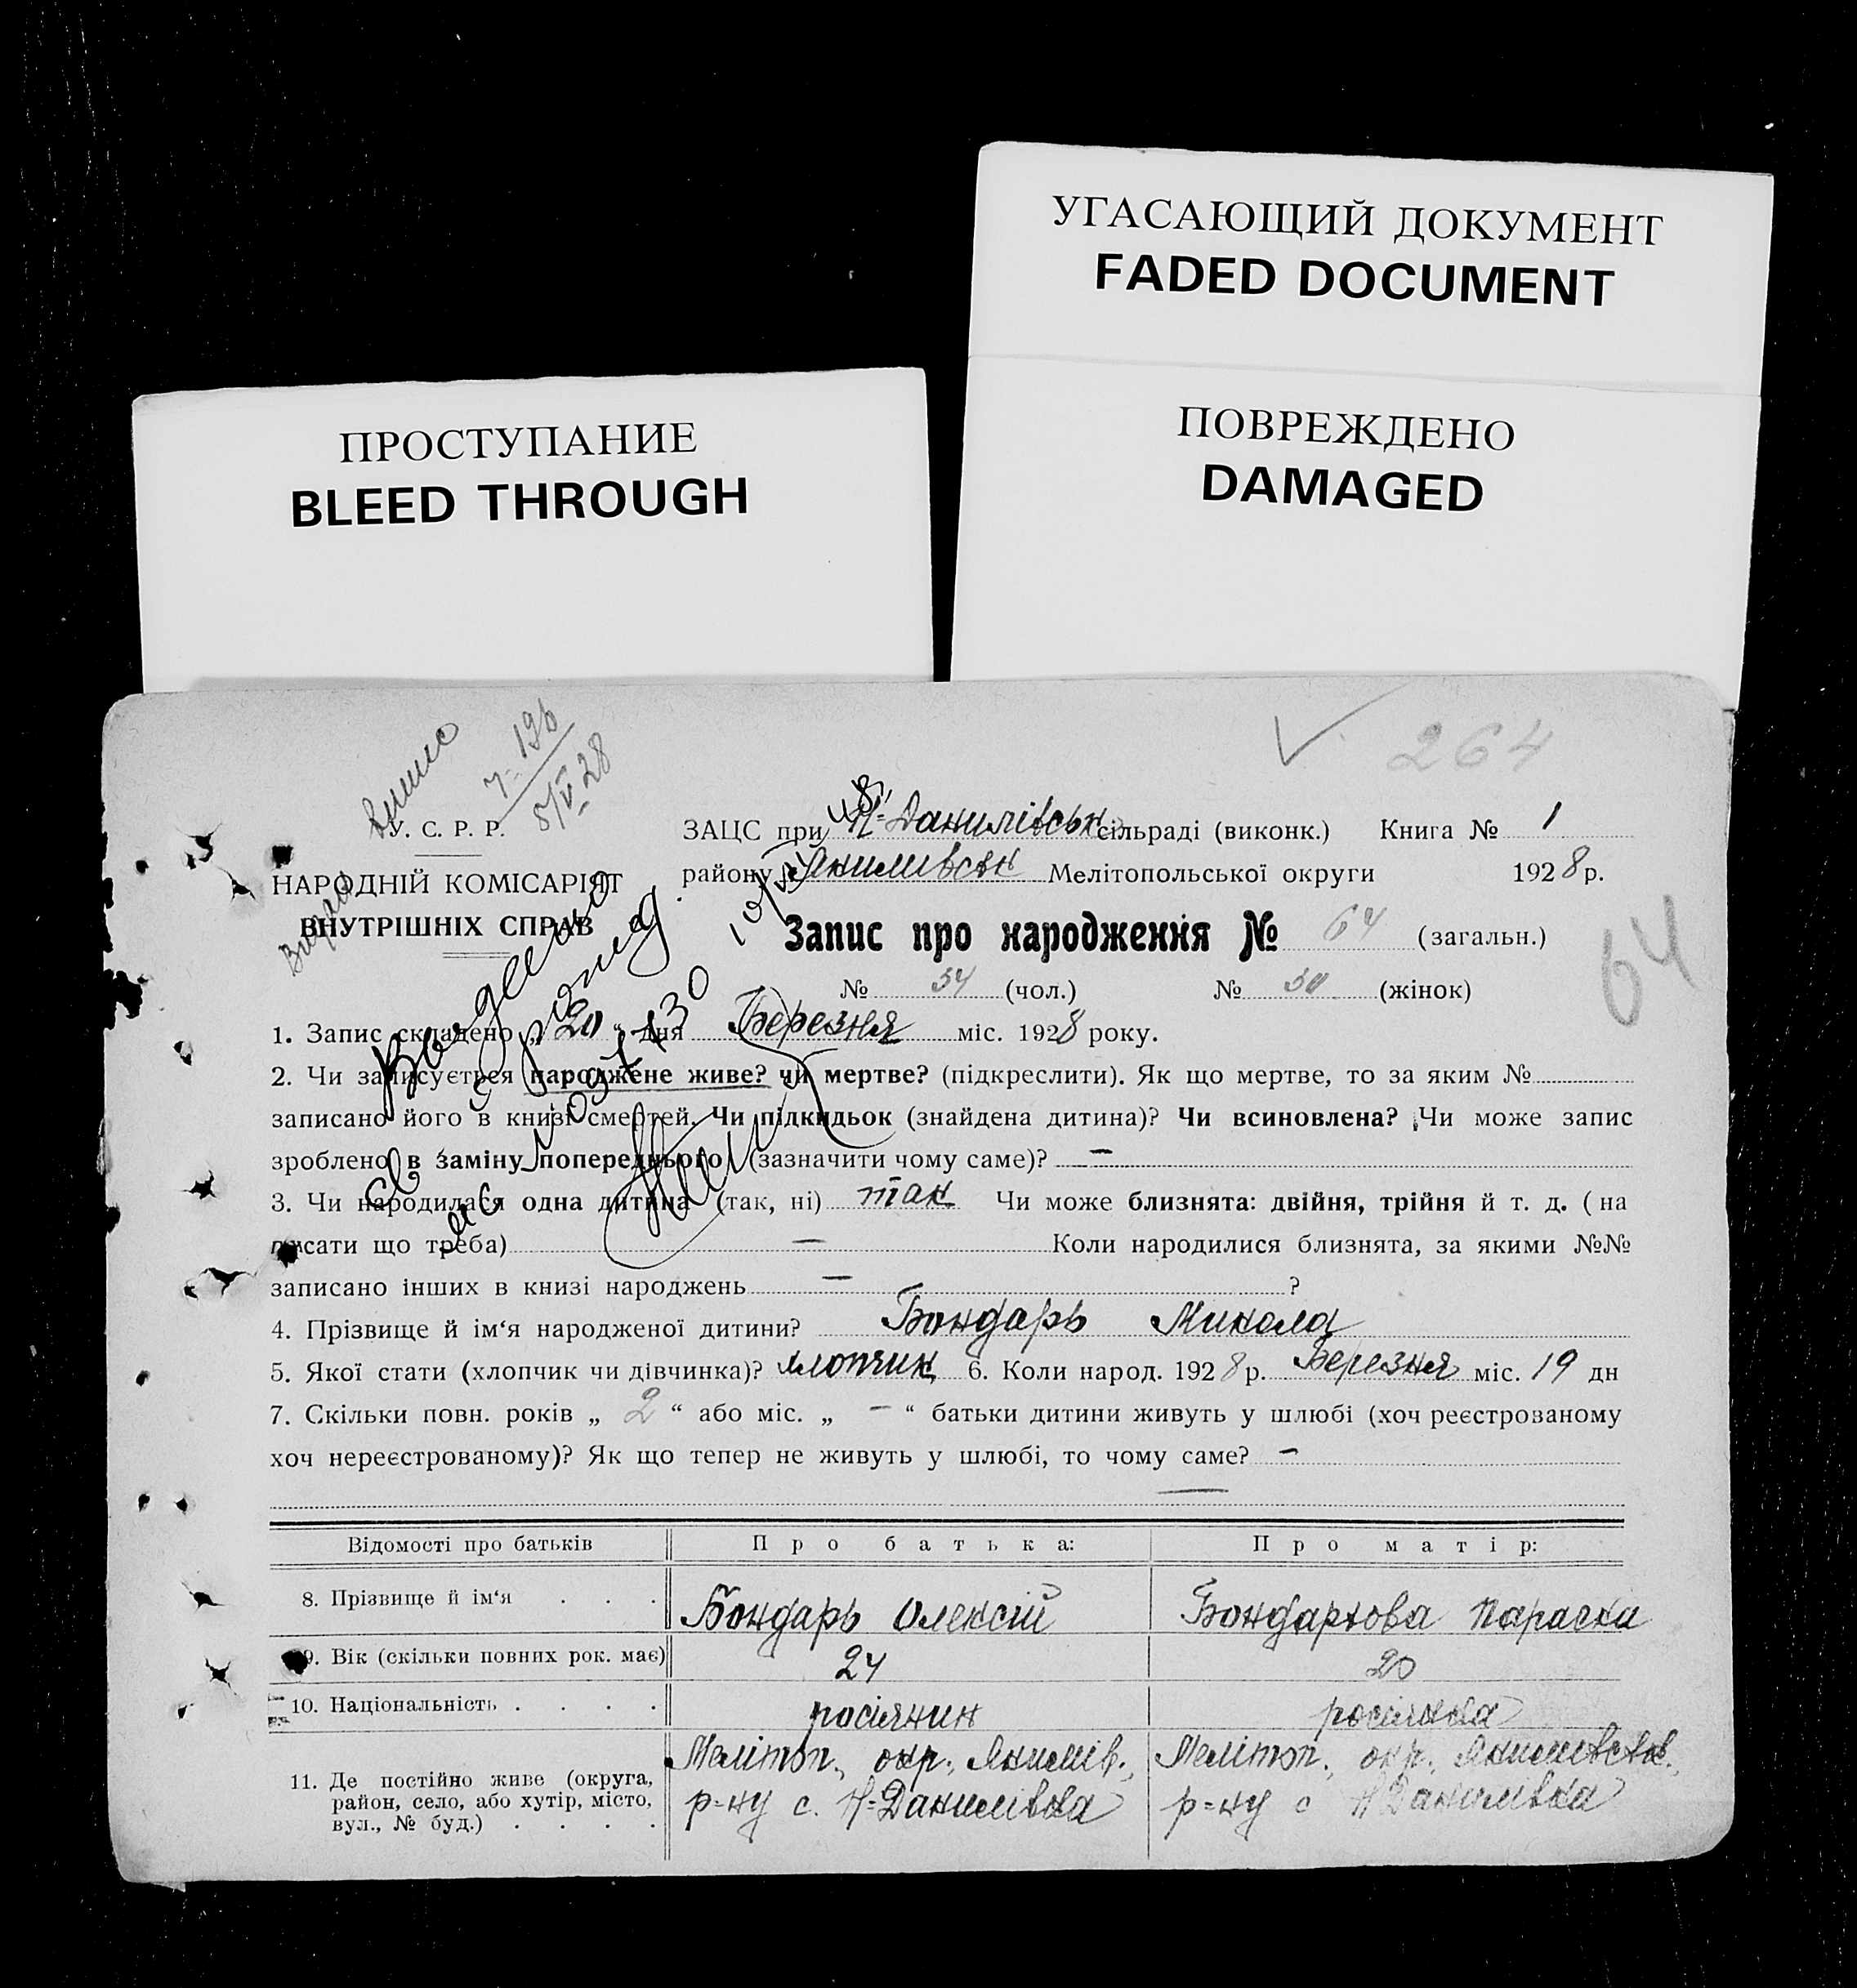 УГАСАЮЩИЙ ДОКУМЕНТ
FADED DOCUMENT
ПОВРЕЖДЕНО
DAMAGED
ПРОСТУПАНИЕ
BLEED THROUGH
264
7-196
5/V-28
У. С. Р. Р.
НАРОДНІЙ КОМІСАРІЯТ
ВНУТРІШНІХ СПРАВ
ЗАЦС при Н-Данилівськ сільраді (виконк.) Книга № 1
району Якимивськ Мелітопольської округи 1928 р.
Запис про народження № 64 (загальн.)
64
№ 34 (чол.) № 30 (жінок)
1. Запис складено „20“ дня Березня міс. 1928 року.
2. Чи записується народжене живе? чи мертве? (підкреслити). Як що мертве, то за яким №
записано його в книзі смертей. Чи підкидьок (знайдена дитина)? Чи всиновлена? Чи може запис
зроблено в заміну попереднього (зазначити чому саме)? —
3. Чи народилася одна дитина (так, ні) так Чи може близнята: двійня, трійня й т. д. (на
писати що треба) — Коли народилися близнята, за якими №№
записано інших в книзі народжень — ?
4. Прізвище й ім‘я народженої дитини? Бондарь Микола
5. Якої стати (хлопчик чи дівчинка)? хлопчик 6. Коли народ. 1928 р. Березня міс. 19 дн
7. Скільки повн. років „ 2 “ або міс. „ — “ батьки дитини живуть у шлюбі (хоч реєстрованому
хоч нереєстрованому)? Як що тепер не живуть у шлюбі, то чому саме? —
Відомості про батьків Про батька: Про матір:
8. Прізвище й ім‘я . . . Бондарь Олексій Бондарьова Параска
9. Вік (скільки повних рок. має) 24 20
10. Національність . . . . росіянин росіянка
11. Де постійно живе (округа, район, село, або хутір, місто, вул., № буд.) . . . .
Меліттоп., окр., Якимів., р=ну с. Н=Данилівка
Мелітоп., окр., Якимівськ., р=ну с Н Данилівка